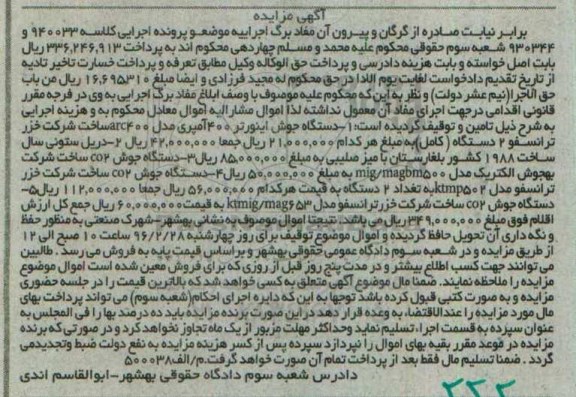 آگهی مزایده
برابر نیابت صادره از گرگان و پیرون آن مفاد برگ اجراییه موضوع پرونده اجرایی کلاسه ۹۴۰۰۳۳ و
۹۳۰۳۴۴ شعبه سوم حقوقی محکوم علیه محمد و مسلم چهاردهی محکوم اند به پرداخت ۳۳۶,۲۴۶,۹۱۳ ریال
بابت اصل خواسته و بابت هزینه دادرسی و پرداخت حق الوکاله وکیل مطابق تعرفه و پرداخت خسارت تاخیر تادیه
از تاریخ تقدیم دادخواست لغایت یوم الادا در حق محکوم له مجید فرزادی و ایضا مبلغ ۱۶,۶۹۵۳۱۰ ریال من باب
حق الاجرا(نیم عشر دولت) و نظر به این که محکوم علیه موصوف با وصف ابلاغ مفاد برگ اجرایی به وی در فرجه مقرر
قانونی اقدامی درجهت اجرای مفاد آن معمول نداشته لذا اموال مشارالیه اموال معادل محکوم به و هزینه اجرایی
به شرح ذیل تامین و توقیف گردیده است: ۱-دستگاه جوش اینورتر ۴۰۰آمپری مدل arc۴۰۰ساخت شرکت خزر
ترانسفو ۲ دستگاه (کامل)به مبلغ هر کدام ۲۱,۰۰۰,۰۰۰ ریال جمعا ۴۲,۰۰۰,۰۰۰ ریال ۲-دریل ستونی سال
ساخت ۱۹۸۸ کشور بلغارستان با میز صلیبی به مبلغ ۸۵,۰۰۰,۰۰۰ ریال۳-دستگاه جوش co۲ ساخت شرکت
بهجوش الکتریک مدل mig/magbm۵۰۰ به مبلغ ۵۰,۰۰۰,۰۰۰ ریال۴-دستگاه جوش co۲ ساخت شرکت خزر
ترانسفو مدل ktmp۵۰۲به تعداد ۲ دستگاه به قیمت هرکدام ۵۶,۰۰۰,۰۰۰ ریال جمعا ۱۱۲,۰۰۰,۰۰۰ ریال۵-
دستگاه جوش co۲ ساخت شرکت خزر ترانسفو مدل ktmig/mag۶۵۳ به قیمت۶۰,۰۰۰,۰۰۰ ریال جمع کل ارزش
اقلام فوق مبلغ ۳۴۹,۰۰۰,۰۰۰ ریال می باشد. نتیجتا اموال موصوف به نشانی بهشهر-شهرک صنعتی به منظور حفظ
و نگه داری آن تحویل حافظ گردیده و اموال موضوع توقیف برای روز چهارشنبه ۹۶/۲/۲۸ ساعت ۱۰ صبح الی ۱۲
از طریق مزایده و در شعبه سوم دادگاه عمومی حقوقی بهشهر و براساس قیمت پایه به فروش می رسد . طالبین
می توانند جهت کسب اطلاع بیشتر و در مدت پنج روز قبل از روزی که برای فروش معین شده است اموال موضوع
مزایده را ملاحظه نمایند. ضمنا مال موضوع آگهی متعلق به کسی خواهد شد که بالاترین قیمت را در جلسه حضوری
مزایده و به صورت کتبی قبول کرده باشد توجها به این که دایره اجرای احکام(شعبه سوم) می تواند پرداخت بهای
مال مورد مزایده را عندالاقتضا، به وعده قرار دهد در این صورت برنده مزایده باید ده درصد بها را فی المجلس به
عنوان سپرده به قسمت اجرا، تسلیم نماید وحداکثر مهلت مزبور از یک ماه تجاوز نخواهد کرد و در صورتی که برنده
مزایده در موعد مقرر بقیه بهای اموال را نپردازد سپرده پس از کسر هزینه مزایده به نفع دولت ضبط وتجدیدمی
گردد . ضمنا تسلیم مال فقط بعد از پرداخت تمام آن صورت خواهد گرفت.م/الف۵۰۰۰۳۸
دادرس شعبه سوم دادگاه حقوقی بهشهر-ابوالقاسم اندی
۲۲۲